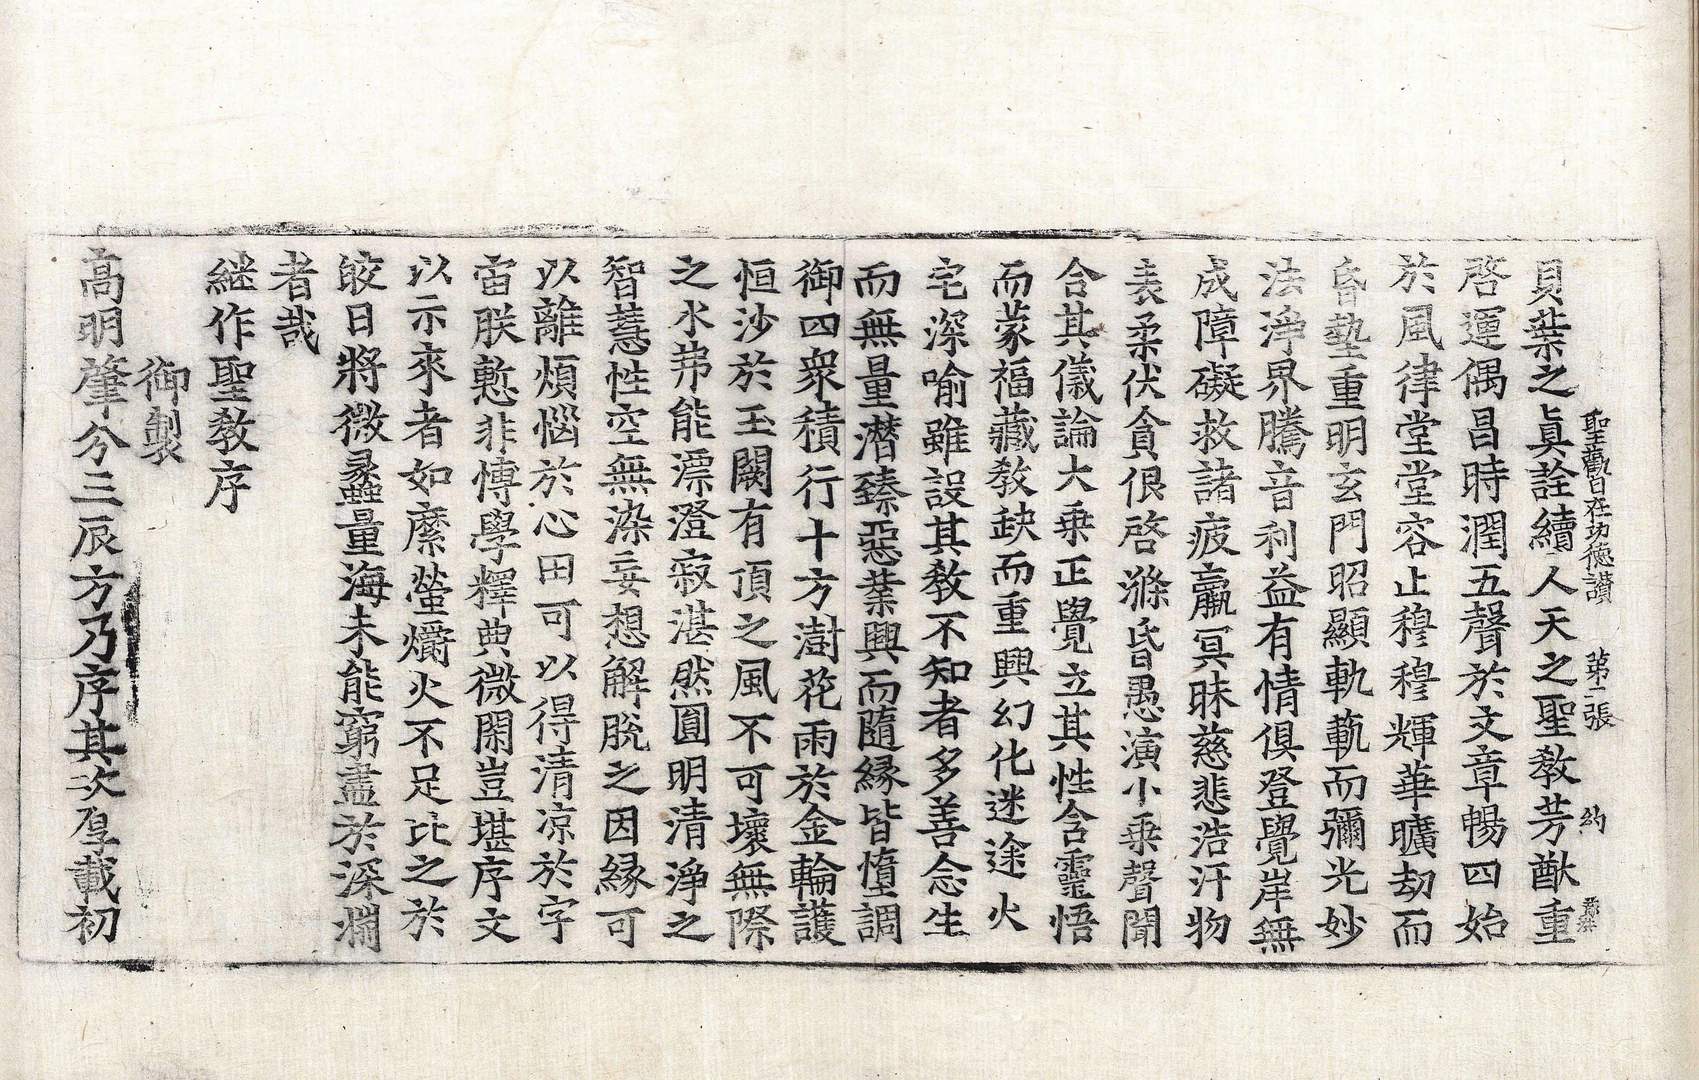 聖觀自在功德讚 第二張 約
貝葉之眞詮續人天之聖敎芳猷重
啓運偶昌時潤五聲於文章暢四始
於風律堂堂容止穆穆輝華曠劫而
昏墊重明玄門昭顯軌躅而彌光妙
法淨界騰音利益有情俱登覺岸無
成障礙救諸疲羸冥昧慈悲浩汗物
表柔伏貪佷啓滌昏愚演小乗聲聞
合其儀論大乗正覺立其性含靈悟
而蒙福藏敎缺而重興幻化迷途火
宅深喩雖設其敎不知者多善念生
而無量潛臻惡業興而隨縁皆墮調
御四衆積行十方澍花雨於金輪護
恒沙於玉闕有頂之風不可壞無際
之水弗能漂澄寂湛然圓明清淨之
智慧性空無染妄想解脫之因縁可
以離煩惱於心田可以得清凉於宇
宙朕慙非博學釋典微閑豈堪序文
以示來者如縻螢爝火不足比之於
皎日將微蠡量海未能窮盡於深淵
者哉
継作聖敎序
御製
高明肇分三辰方乃序其次厚載初